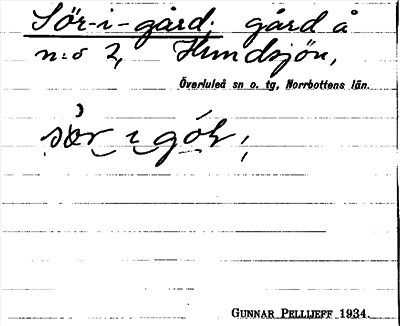 Sör-i-gård; gård å
n:o 2, Hundsjön,
Överluleå sn o. tg, Norrbottens län.
GUNNAR PELLIJEFF 1934.